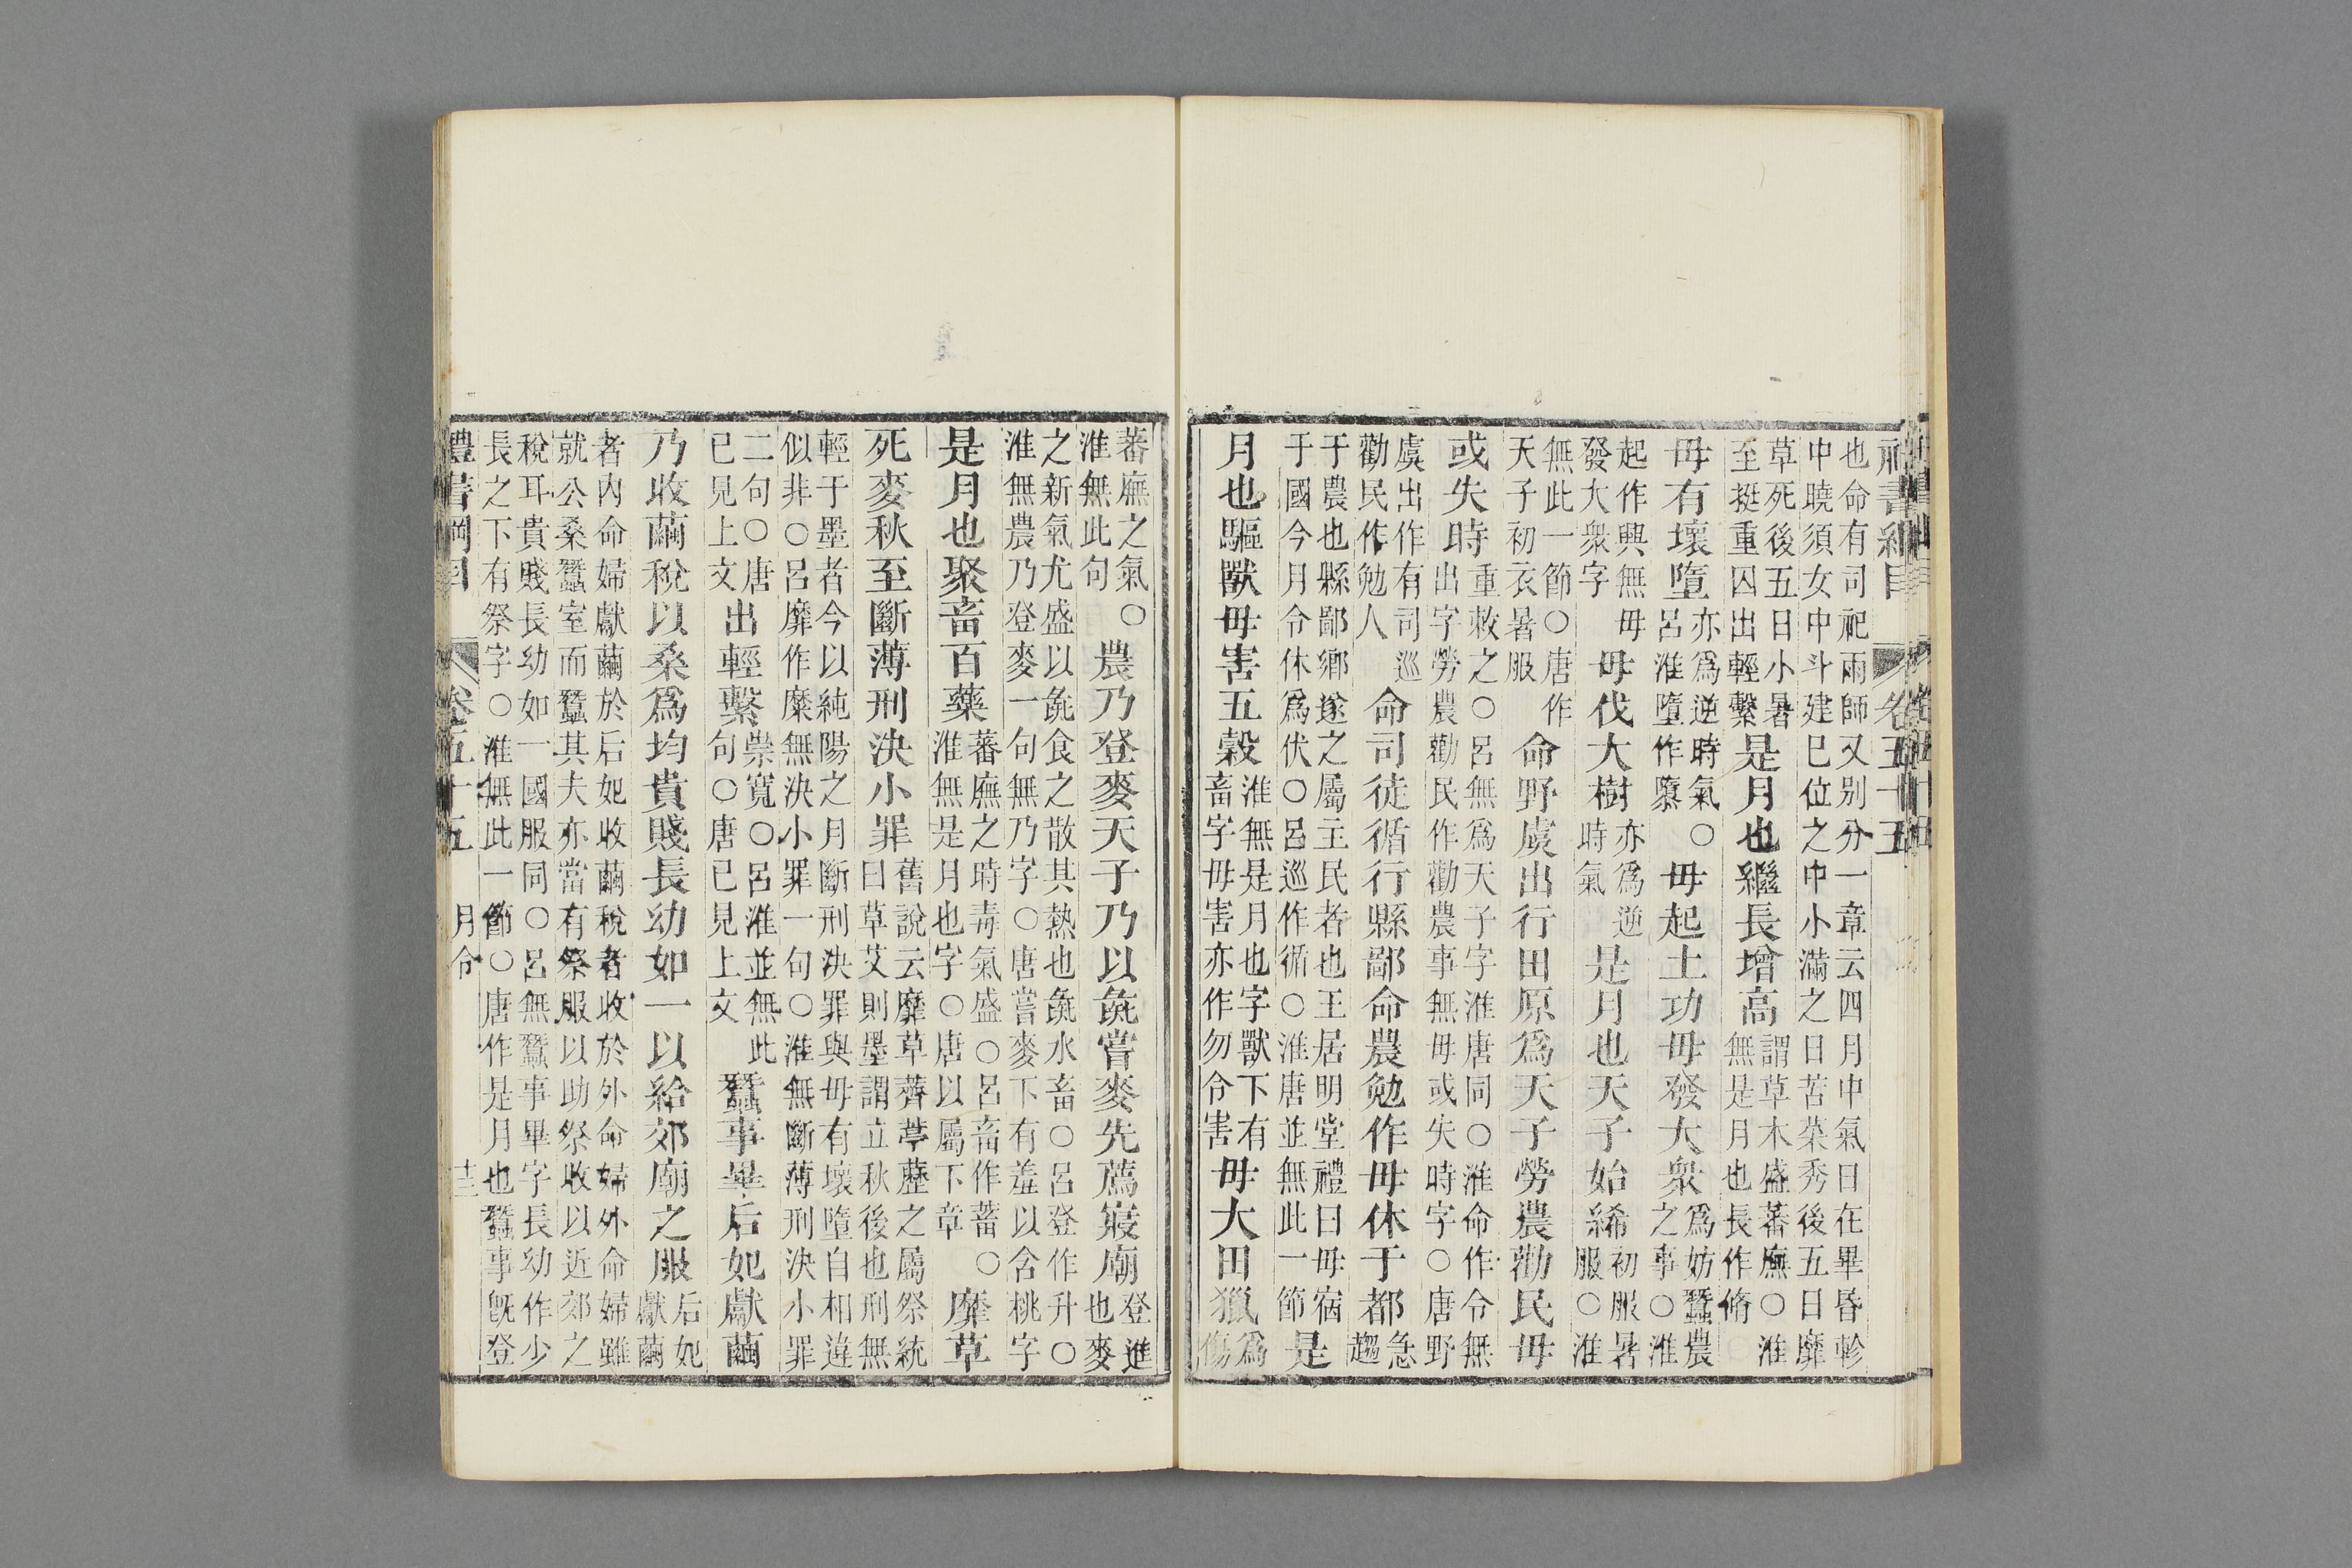 書綱目 卷五十五
也命有司祀雨師又别分一章云四月中氣日在畢昏軫
中曉須女中斗建巳位之中小滿之日苦菜秀後五日靡
草死後五日小暑
至挺重囚出輕繫
是月也繼長增高
謂草木盛蕃廡○淮
無是月也長作脩
毋有壞墮
亦爲逆時氣○
呂淮墮作隳
毋起土功毋發大衆
爲妨蠶農
之事○淮
起作興無毋
發大衆字
毋伐大樹
亦爲逆
時氣
是月也天子始絺
初服暑
服○淮
無此一節○唐作
天子初衣暑服
命野虞出行田原爲天子勞農勸民毋
或失時
重敕之○呂無爲天子字淮唐同○淮命作令無
出字勞農勸民作勸農事無毋或失時字○唐野
虞出作有司巡
勸民作勉人
命司徒循行縣鄙命農勉作毋休于都
急
趨
于農也縣鄙鄉遂之屬主民者也王居明堂禮曰毋宿
于國今月令休爲伏○呂巡作循○淮唐並無此一節
是
月也驅獸毋害五穀
淮無是月也字獸下有
畜字毋害亦作勿令害
毋大田獵
爲
傷
蕃廡之氣○
淮無此句
農乃登麥天子乃以彘嘗麥先薦寢廟
登進
也麥
之新氣尤盛以彘食之散其熱也彘水畜○呂登作升○
淮無農乃登麥一句無乃字○唐嘗麥下有羞以含桃字
是月也聚畜百藥
蕃廡之時毒氣盛○呂畜作蓄○
淮無是月也字○唐以屬下章
靡草
死麥秋至斷薄刑決小罪
舊說云靡草薺葶藶之屬祭統
曰草艾則墨謂立秋後也刑無
輕于墨者今以純陽之月斷刑決罪與毋有壞墮自相違
似非○呂靡作糜無決小罪一句○淮無斷薄刑決小罪
二句○唐
已見上文
出輕繫
崇寬○呂淮並無此
句○唐已見上文
蠶事畢后妃獻繭
乃收繭稅以桑爲均貴賤長幼如一以給郊廟之服
后妃
獻繭
者內命婦獻繭於后妃收繭稅者收於外命婦外命婦雖
就公桑蠶室而蠶其夫亦當有祭服以助祭收以近郊之
稅耳貴賤長幼如一國服同○呂無蠶事畢字長幼作少
長之下有祭字○淮無此一節○唐作是月也蠶事旣登
禮書綱目 卷五十五 月令 十三